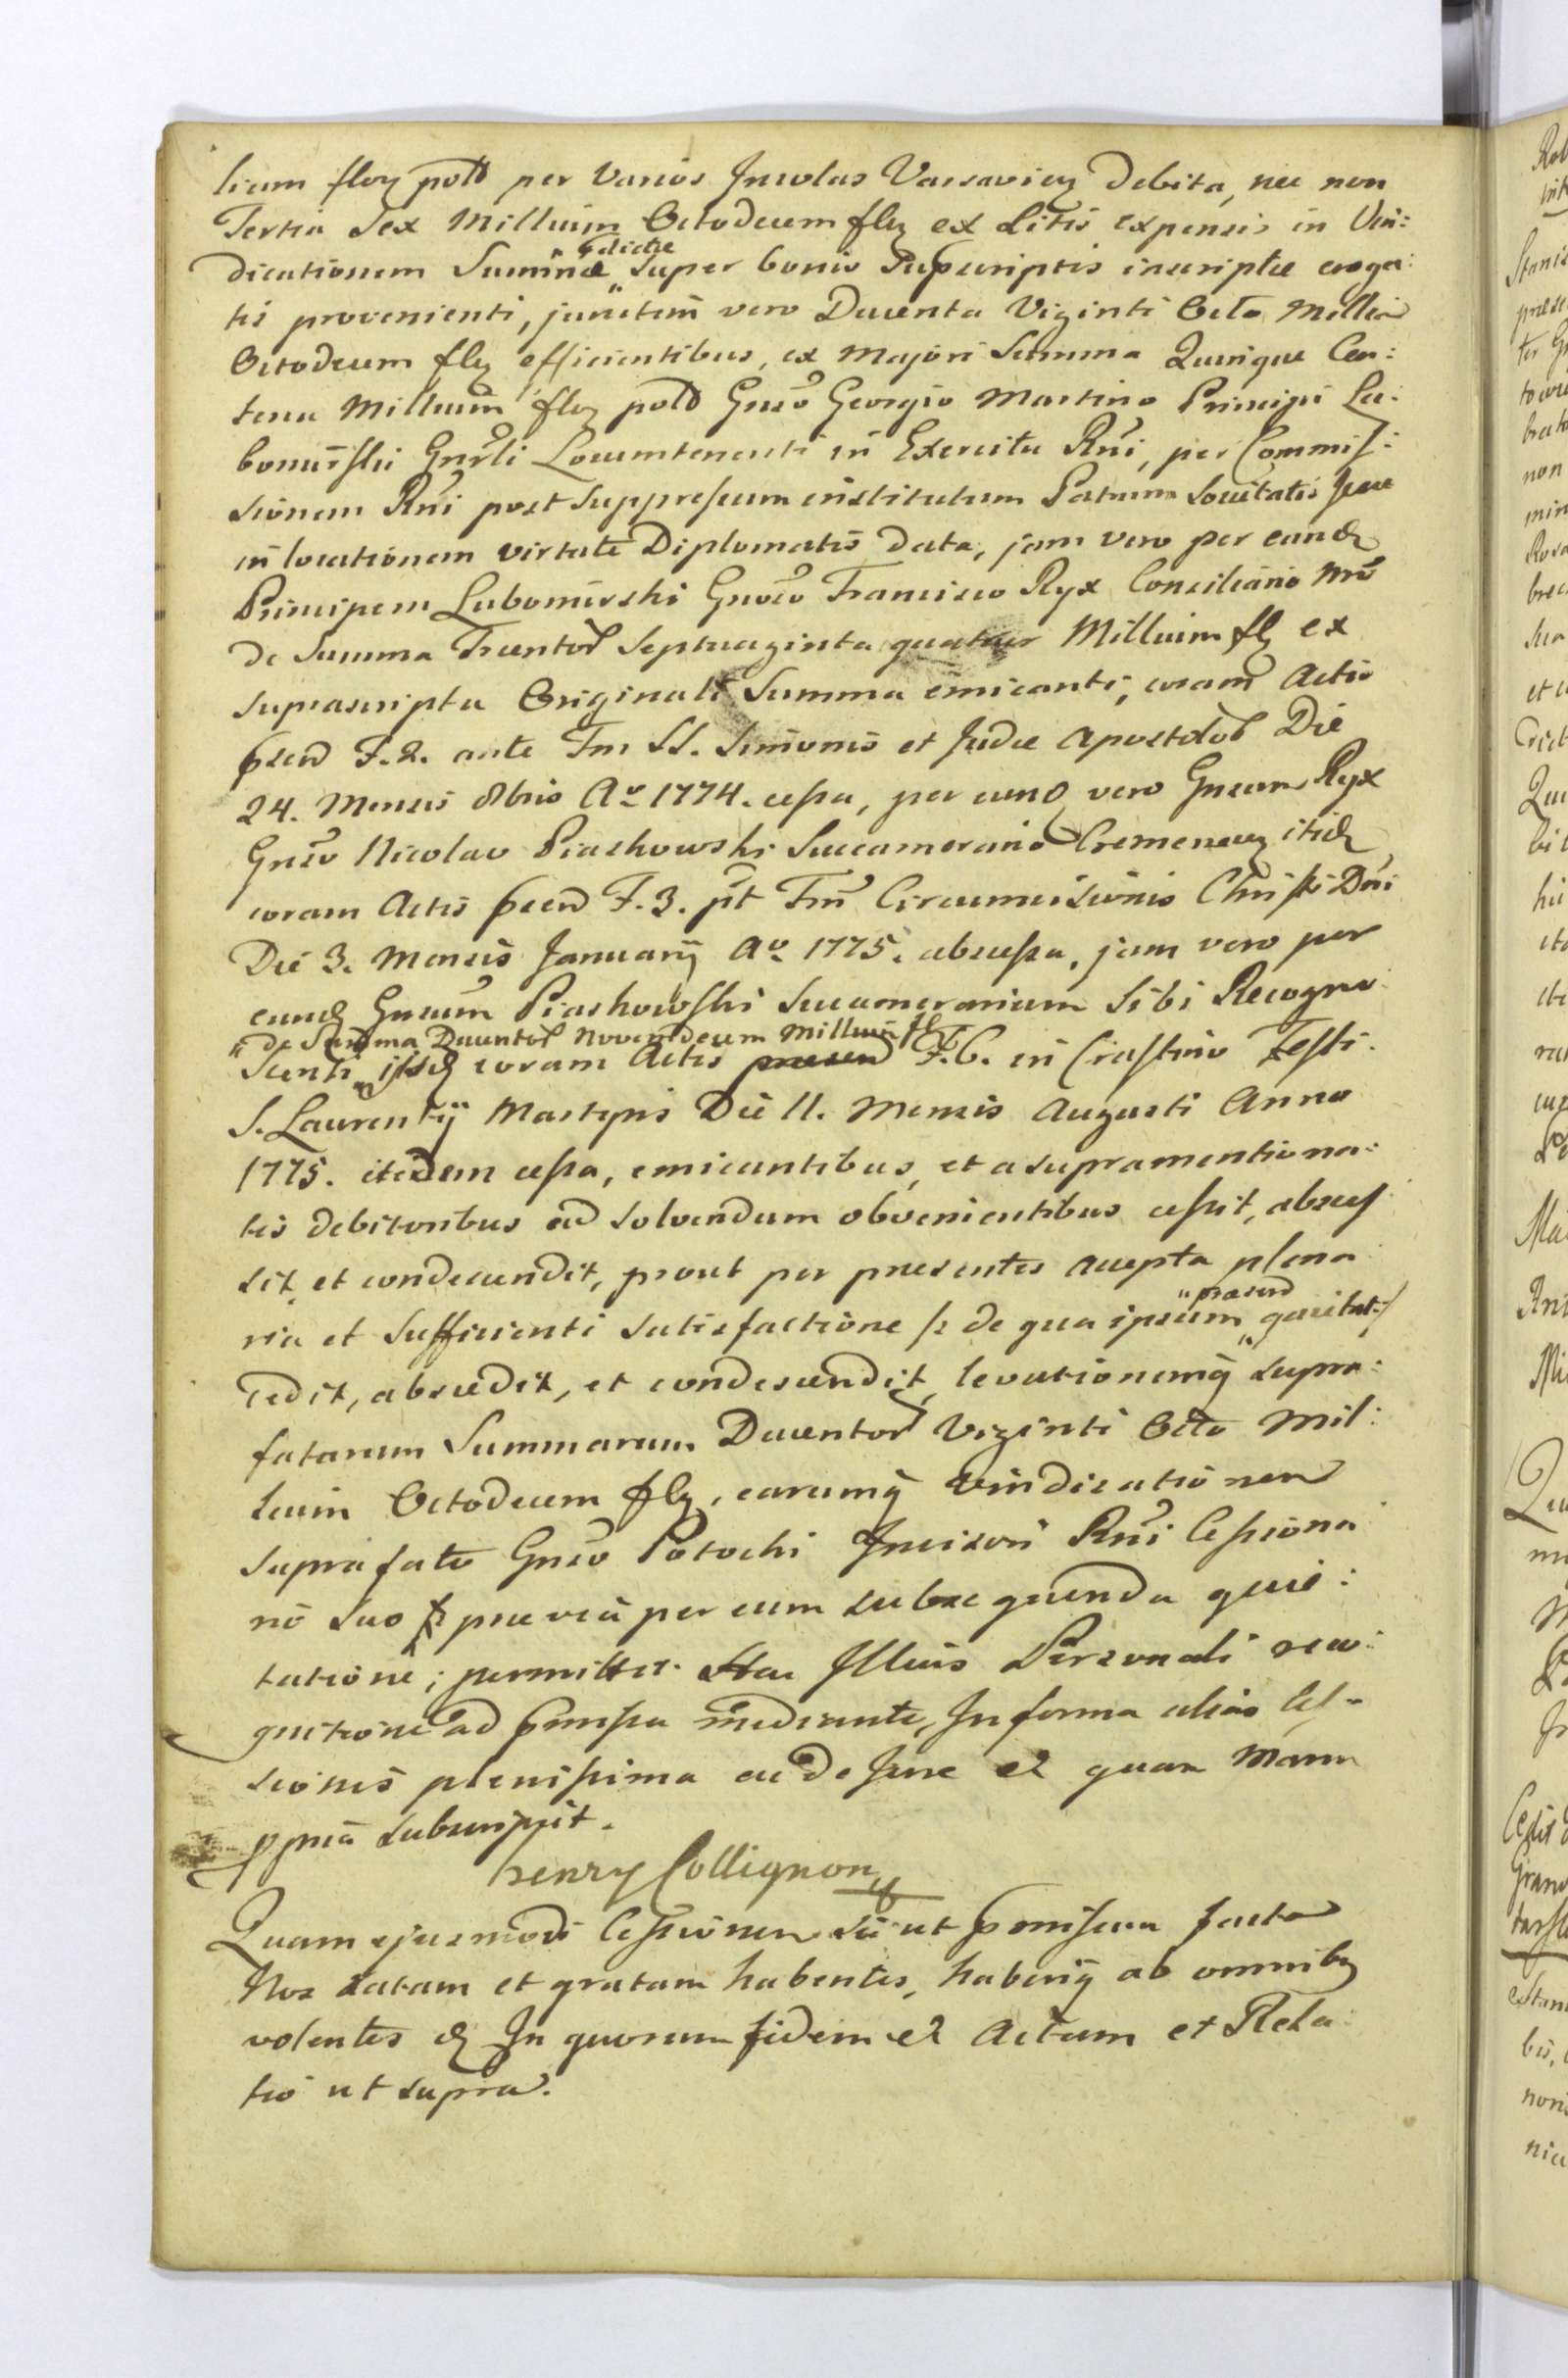 lium flor pold per Varios Incolas Varsavien debita, nec non
Tertia Sex Millium Octodecem flp ex Litis Expensis in Vin:
dicationem Summæ
pdictæ
Super bonis Supscriptis inscriptæ eroga:
tis provenienti, junctim vero Ducenta Viginti Octo Millia
Octodecem flp efficientibus, ex Majori Summa Quinque Cen:
tena Millium flor pold Gnso Georgio Martino Principi Lu:
bomirski Gnrli Locumtenenti in Exercitu Rni, per Commis:
sionem Rni post Suppressum institutum Patrum Societatis Jesu
in locationem virtute Diplomatis data, jam vero per eund
Principem Lubomirski Gnoso Francisco Ryx Consiliario
de Summa Trecentor Septuaginta quatuor Millium fl ex
suprascripta Originali Summa emicanti, coram Actis
psen F. 2. ante Fm SS. Simonis et Judæ Apostolor Die
24. Mensis 8bris Ao 1774. cessa, per eund vero Gnsum Ryx
Gnso Nicolao Piaskowski Succamerario Cremenecen itid
coram Actis psen F. 3. pt Fm Circumcisionis Christi Dni
Die 3. Mensis Januarij Ao 1775. abscessa, jam vero per
eund Gnsum Piaskowski Succamerarium Sibi Recogno
de Summa Ducentor Novendecem Millium fl
scenti iisd coram Actis F. 6. in Crastino Festi
S. Laurentij Martyris Die 11. Mensis Augusti Anno
1775. itidem cessa, emicantibus, et a supramentiona:
tis debitoribus ad solvendum obvenientibus cessit, absces
sit et condescendit, prout per præsentes accepta plena
ria et Sufficienti Satisfactione /: de qua ipsum
præsen
quietat :/
Cedit, abscedit, et condescendit, levationemq supra:
fatarum Summarum Ducentor Viginti Octo Mil:
lium Octodecem flp, earumq vindicationem
suprafato Gnso Potocki Incisori Rni Cessiona
rio suo prævia per eum subsequenda quie:
tatione; permittit. Hac Illius Personali reco:
gnitione ad pmissa mediante, In forma alias Ces-
sionis plenissima ac de Jure et quam Manu
ppria subscripsit.
henry Collignon
Quam ejusmodi Cessionem sic ut pmissum facta
Nos ratam et gratam habentes, haberiq ab omnibq
volentes In quorum fidem et Actum et Rela
tio ut supra.